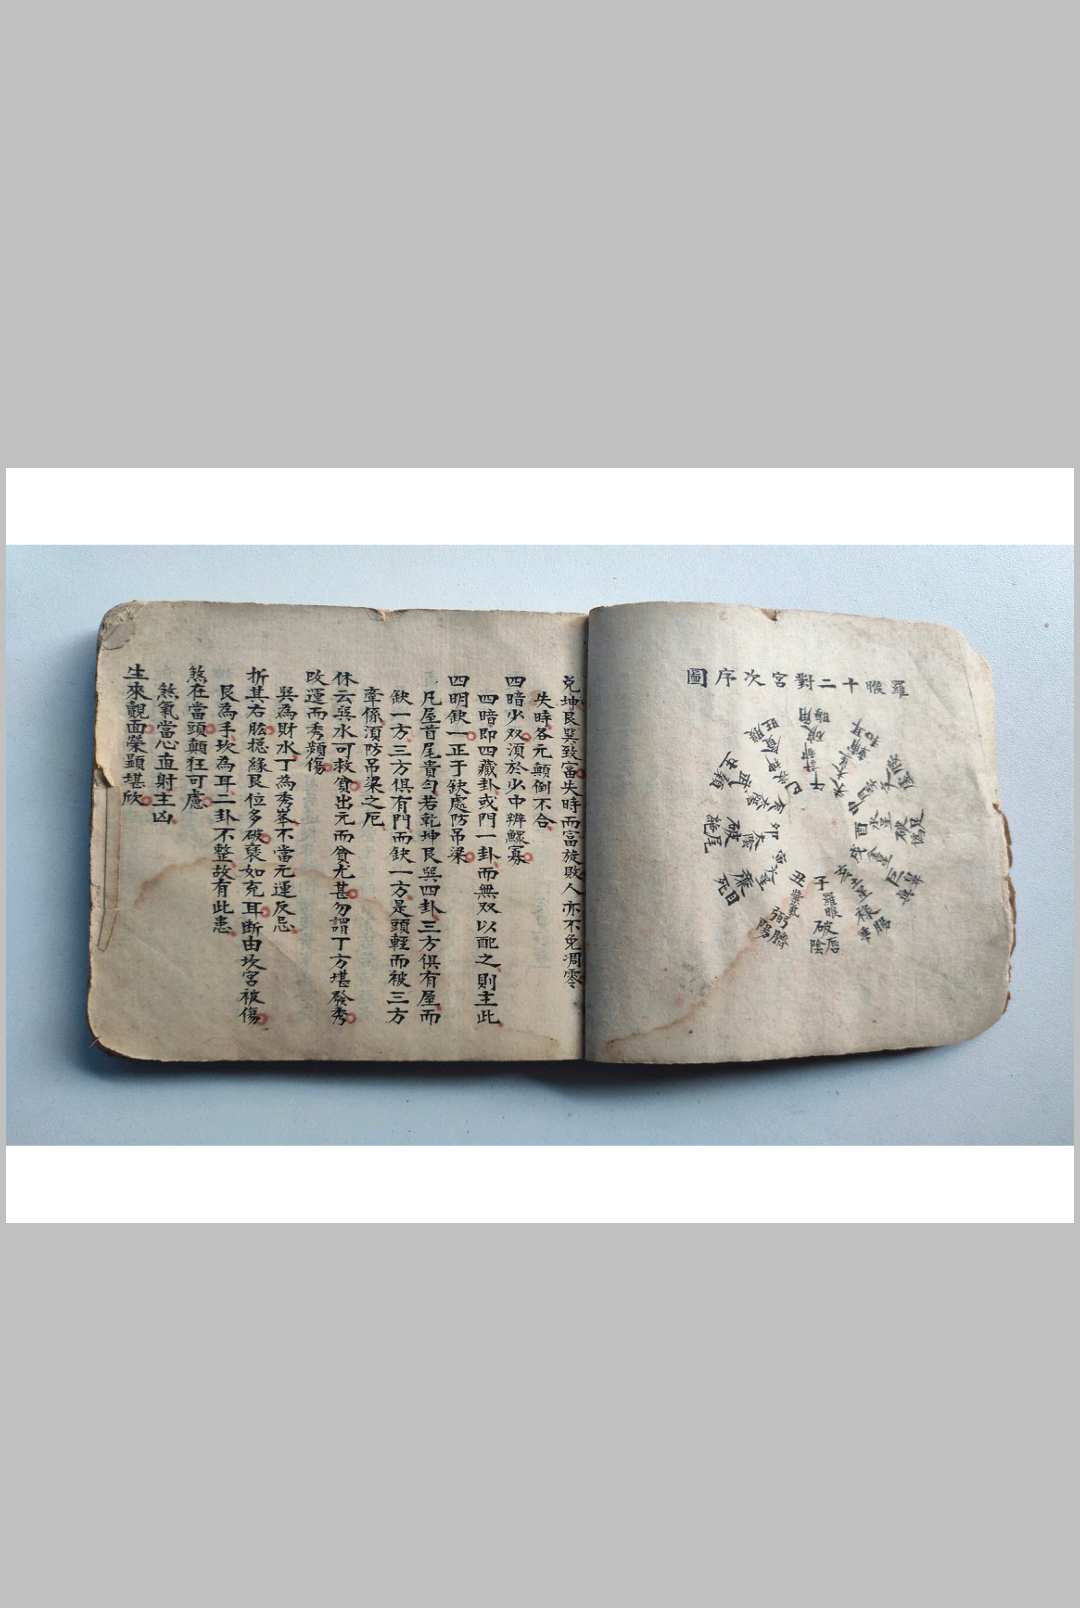 羅睺十二對宮次序圖
子
羅睺
破
陰
唇
丑
紫氣
弼
陽
臍
廉
死
目
卯
太陰
破
酉
戌
兌坤艮巽致富失時而富旋敗人亦不免凋零
失時各元顛倒不合
四暗少双須於少中辨鰥寡
四暗即四藏卦或門一卦而無双以配之則主此
四明欽一正于欽處防吊梁
凡屋首尾貴勻若乾坤艮巽四卦三方俱有屋而
欽一方三方俱有門而缺一方是頭輕而被三方
牽係須防吊梁之厄
休云巽水可救貧出元而貧尤甚勿謂丁方堪發秀
改運而秀頻傷
巽為財水丁為秀峯不當元運反忌
折其右肱摠緣艮位多破褎如充耳断由坎宮被傷
艮為手坎為耳二卦不整故有此恚
煞在當頭顛狂可慮
煞氣當心直射主凶
生來觀面榮顯堪欣